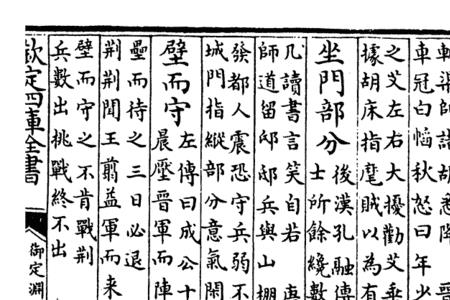 渠師詣胡悉降
車冠白幍秋怒曰年出
之艾左右大擾勸艾乗
據胡床指麾賊以為有
坐門部分
後漢孔融傳
士所餘纔數
凡讀書言笑自若 再
師道留邸邸兵與山棚
發都人震恐守兵弱不
城門指縱部分意氣閑
壁而守
左傳曰成公十
晨壓晉軍而陣
壘而待之三日必退
荆荆聞王翦益軍而来
壁而守之不肯戰荆
兵數出挑戰終不出
欽定四庫全書
御定淵